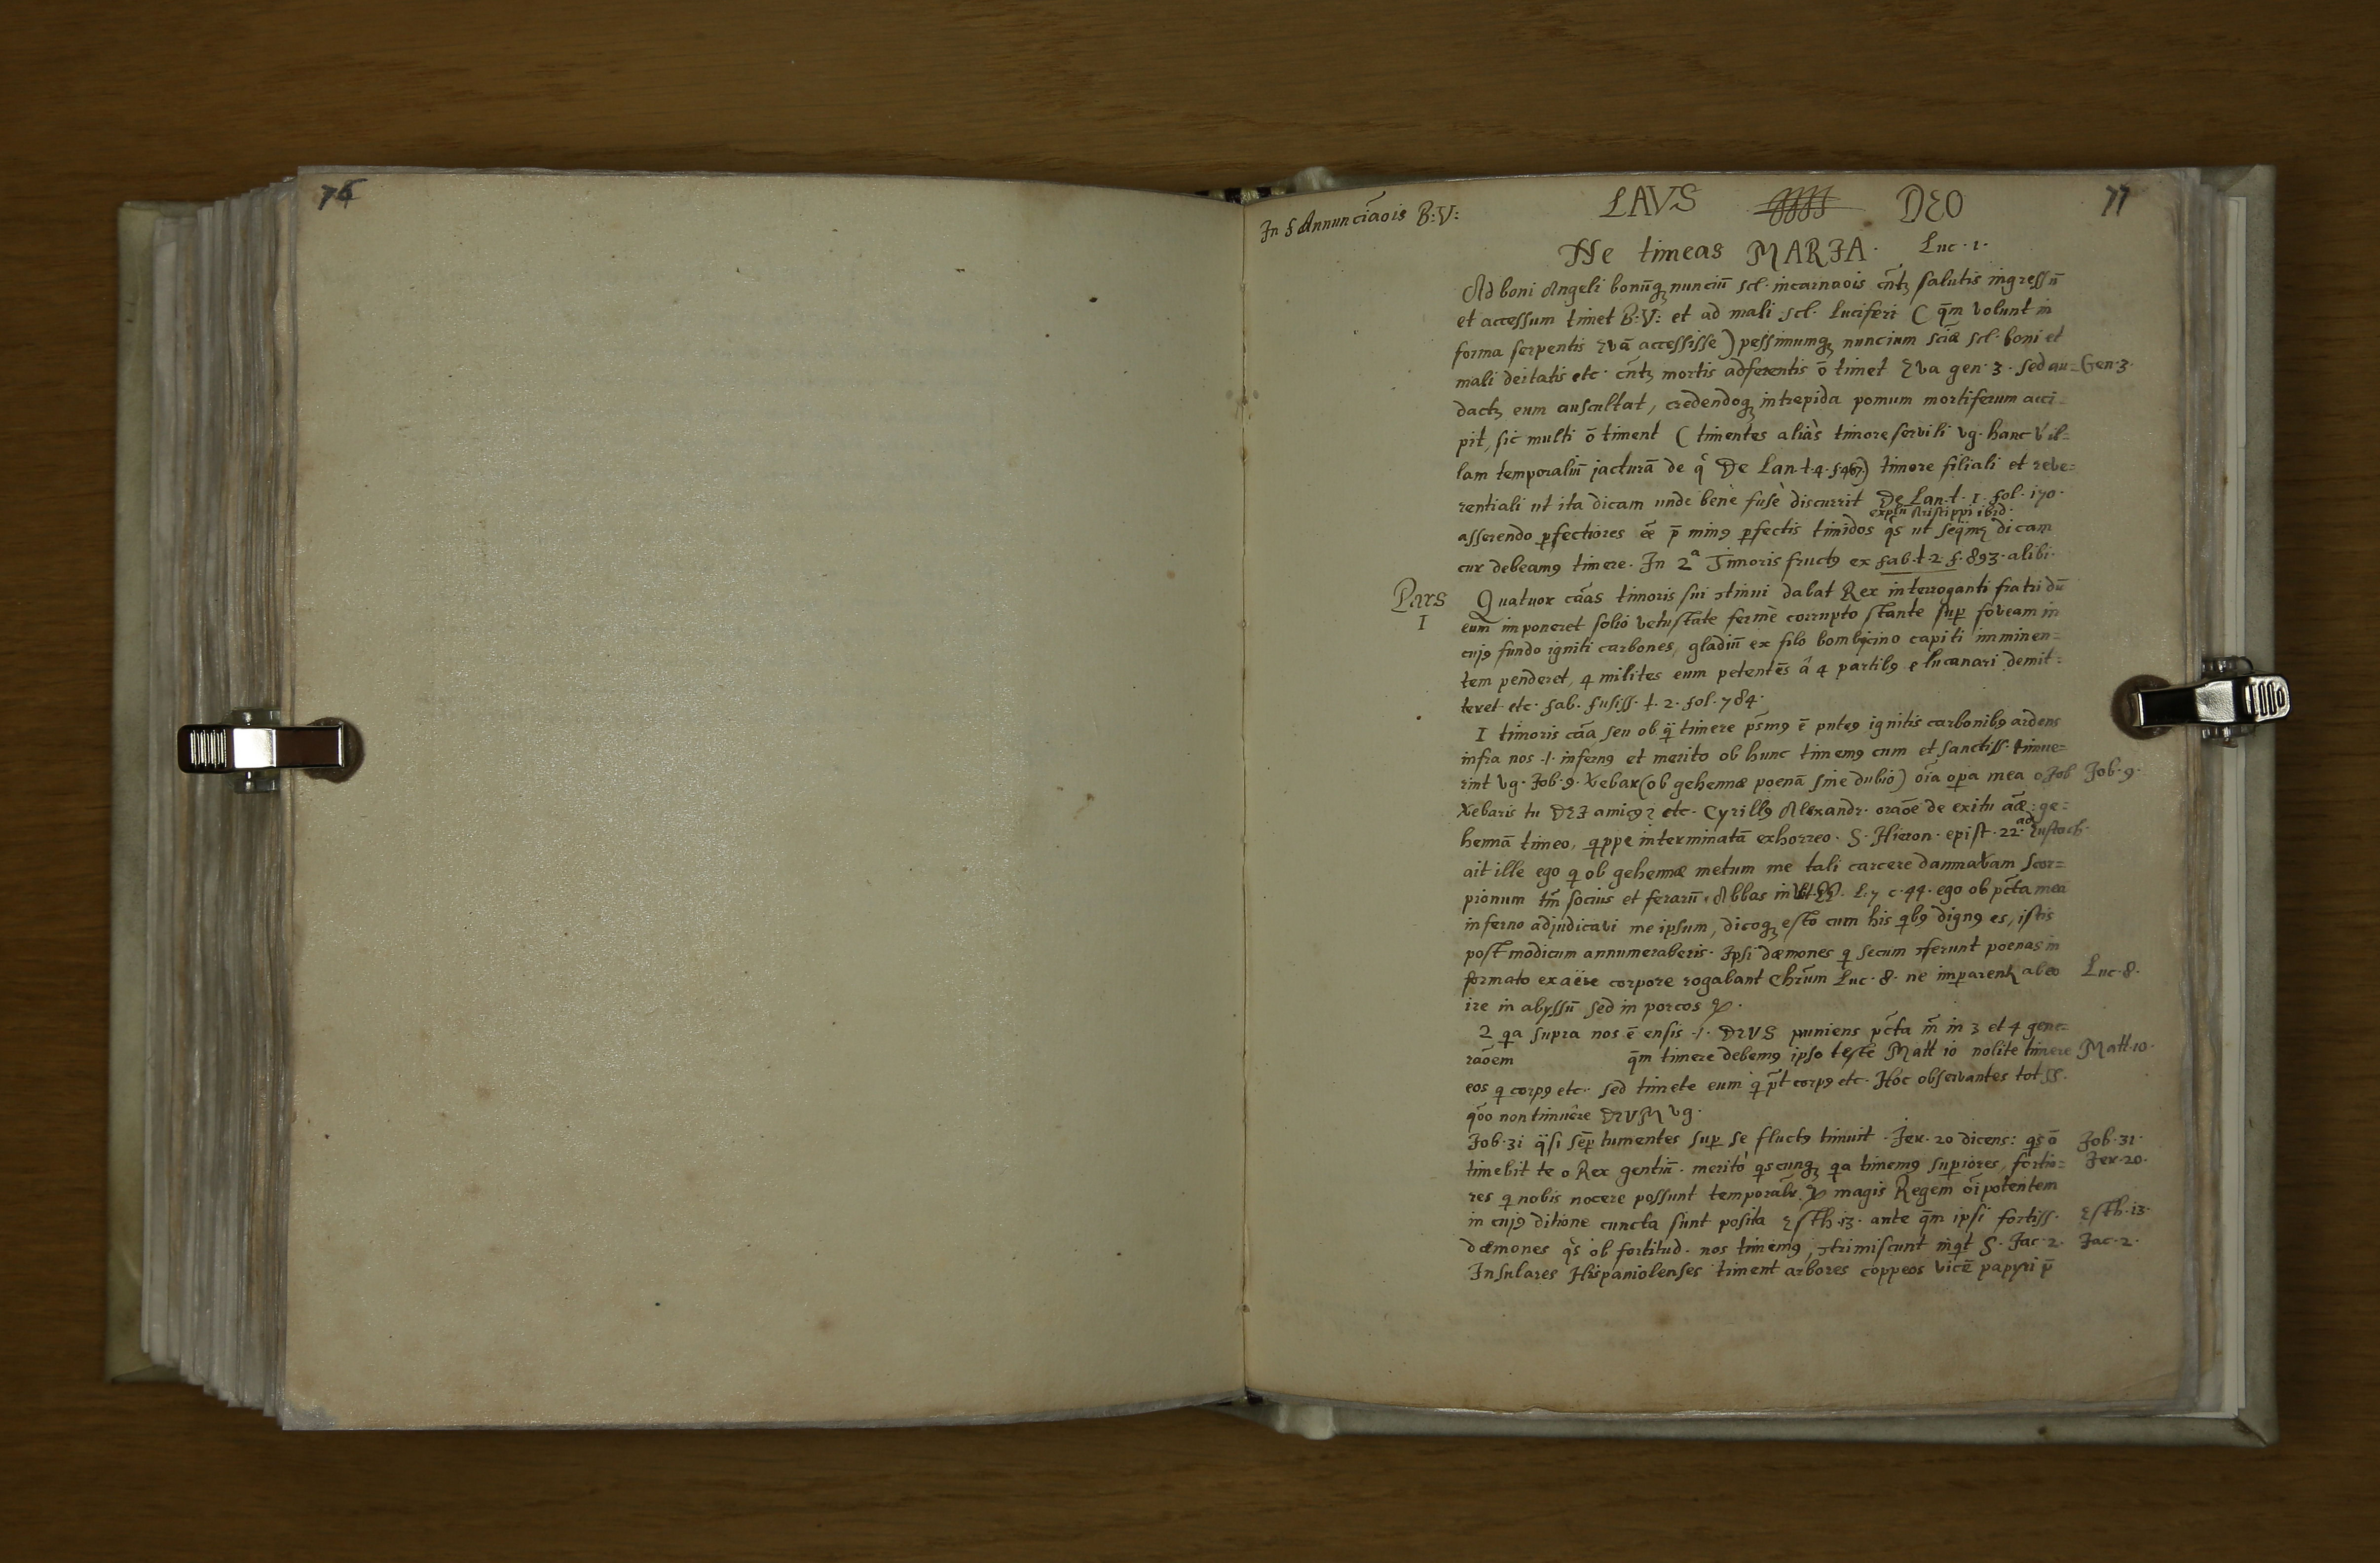 76
77
In f Annunciãois B:V:
LAVS DEO
Ne timeas MARIA. Luc. 1.
Ad boni Angeli bonūq, nunciū scl. incarnaois cñtȝ salutis ingressū
et accessum timet B:V: et ad mali scl. Luciferi (q̄m volunt in
forma serpentis Evā accessisse) pessimumq, nuncium sciæ scl. boni et
mali deitatis etc. cñtȝ mortis adferentis ō timet Eva gen. 3. sed au= Gen. 3.
dactȝ eum auscultat, credendoq, intrepida pomum mortiferum acci=
pit, sic multi ō timent (timentes aliàs timore servili vg. hanc vil=
lam temporaliū jacturā de q̃ De Lan. t. 4. f. 467.) timore filiali et reve=
rentiali ut ita dicam unde benè fusè discurrit De Lan. t. 1. fol. 170.
explū Aristippi ibid.
asserendo pfectiores ēē p̄ minꝯ pfectis timidos q̃s ut seqimȝ dicam
cur debeamꝯ timere. In 2ª Timoris fructꝯ ex fab. t. 2. f. 893. alibi.
Pars I
Quatuor cãas timoris sui ↄtinui dabat Rex interroganti fratri dū
eum imponeret solio vetustate fermè corrupto stante sup foveam in
cujꝯ fundo igniti carbones, gladiū ex filo bombicino capiti imminen=
tem penderet, 4 milites eum petentēs â 4 partibꝯ e lucanari demit=
teret etc. fab. fusiss. t. 2. fol. 784.
I timoris cãa seu ob q̃ timere psm̄ꝯ ē puteꝯ ignitis carbonibꝯ ardens
infra nos .|. infernꝯ et merito ob hunc timemꝯ cum et sanctiss. timue=
rint vg. Job. 9. Verebar (ob gehennæ poenā sine dubio) oĩa opa mea o Job Job. 9.
Verebaris tu DEI amicꝯ? etc. Cyrillꝯ Alexandr. oraõe de exitu aæ: ge=
hennā timeo, qppe interminatā exhorreo. S. Hieron. epist. 22. ad Eustoch.
ait ille ego q ob gehennæ metum me tali carcere damnavam scor=
pionum tm̃ socius et ferarū. Abbas in Vit. PP. l. 7 c. 44. ego ob pc̃ta mea
inferno adjudicavi me ipsum, dicoq, esto cum his qbꝯ dignꝯ es, istis
post modicum annumeraberis. Ipsi dæmones q secum ↄferunt poenas in
formato ex aëre corpore rogabant Chrūm Luc. 8. ne imparentȝ ab eo Luc. 8.
ire in abyssū sed in porcos
2 qa supra nos ē ensis .|. DEUS puniens pc̃ta m̃ in 3 et 4 gene=
raõem q̄m timere debemꝯ ipso teste Matt 10 nolite timere Matt. 10.
eos q corpꝯ etc. sed timete eum q p̃t corpꝯ etc. Hoc observantes tot SS.
qōo non timuêre DEUM vg.
Job. 31 q̃si sēp tumentes sup se fluctꝯ timuit. Jer. 20 dicens: qs ō Job. 31.
timebit te o Rex gentiū. meritò qscunq, qa timemꝯ supiores, fortio= Jer. 20.
res q nobis nocere possunt temporalr. magis Regem oĩpotentem
in cujꝯ ditione cuncta sunt posita Esth. 13. ante q̄m ipsi fortiss. Esth. 13.
dæmones q̃s ob fortitud. nos timemꝯ, ↄtrimiscunt inqt S. Jac. 2. Jac. 2.
Insulares Hispaniolenses timent arbores coppeos vicē papyri p̄